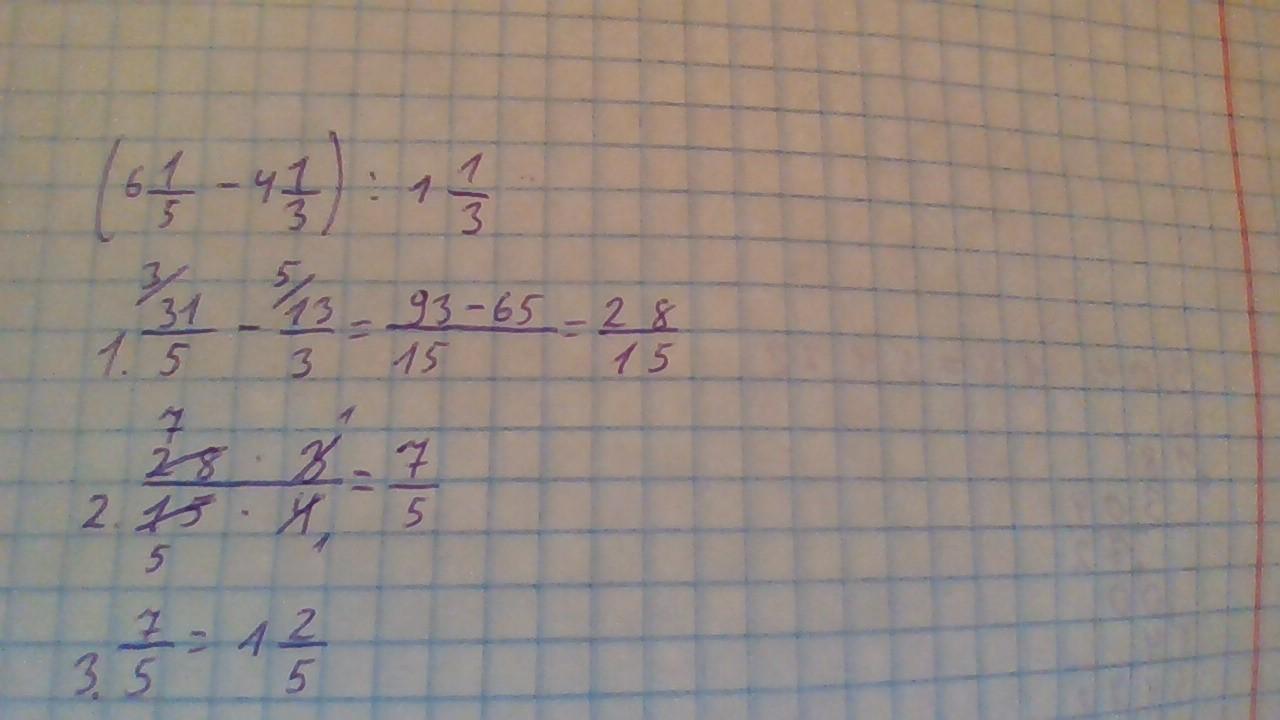 (6 1/5 - 4 1/3) : 1 1/3
1. 3/ 31/5 - 5/ 13/3 = 93-65/15 = 28/15
2. 7 28 · 3 1 / 15 5 · 4 1 = 7/5
3. 7/5 = 1 2/5